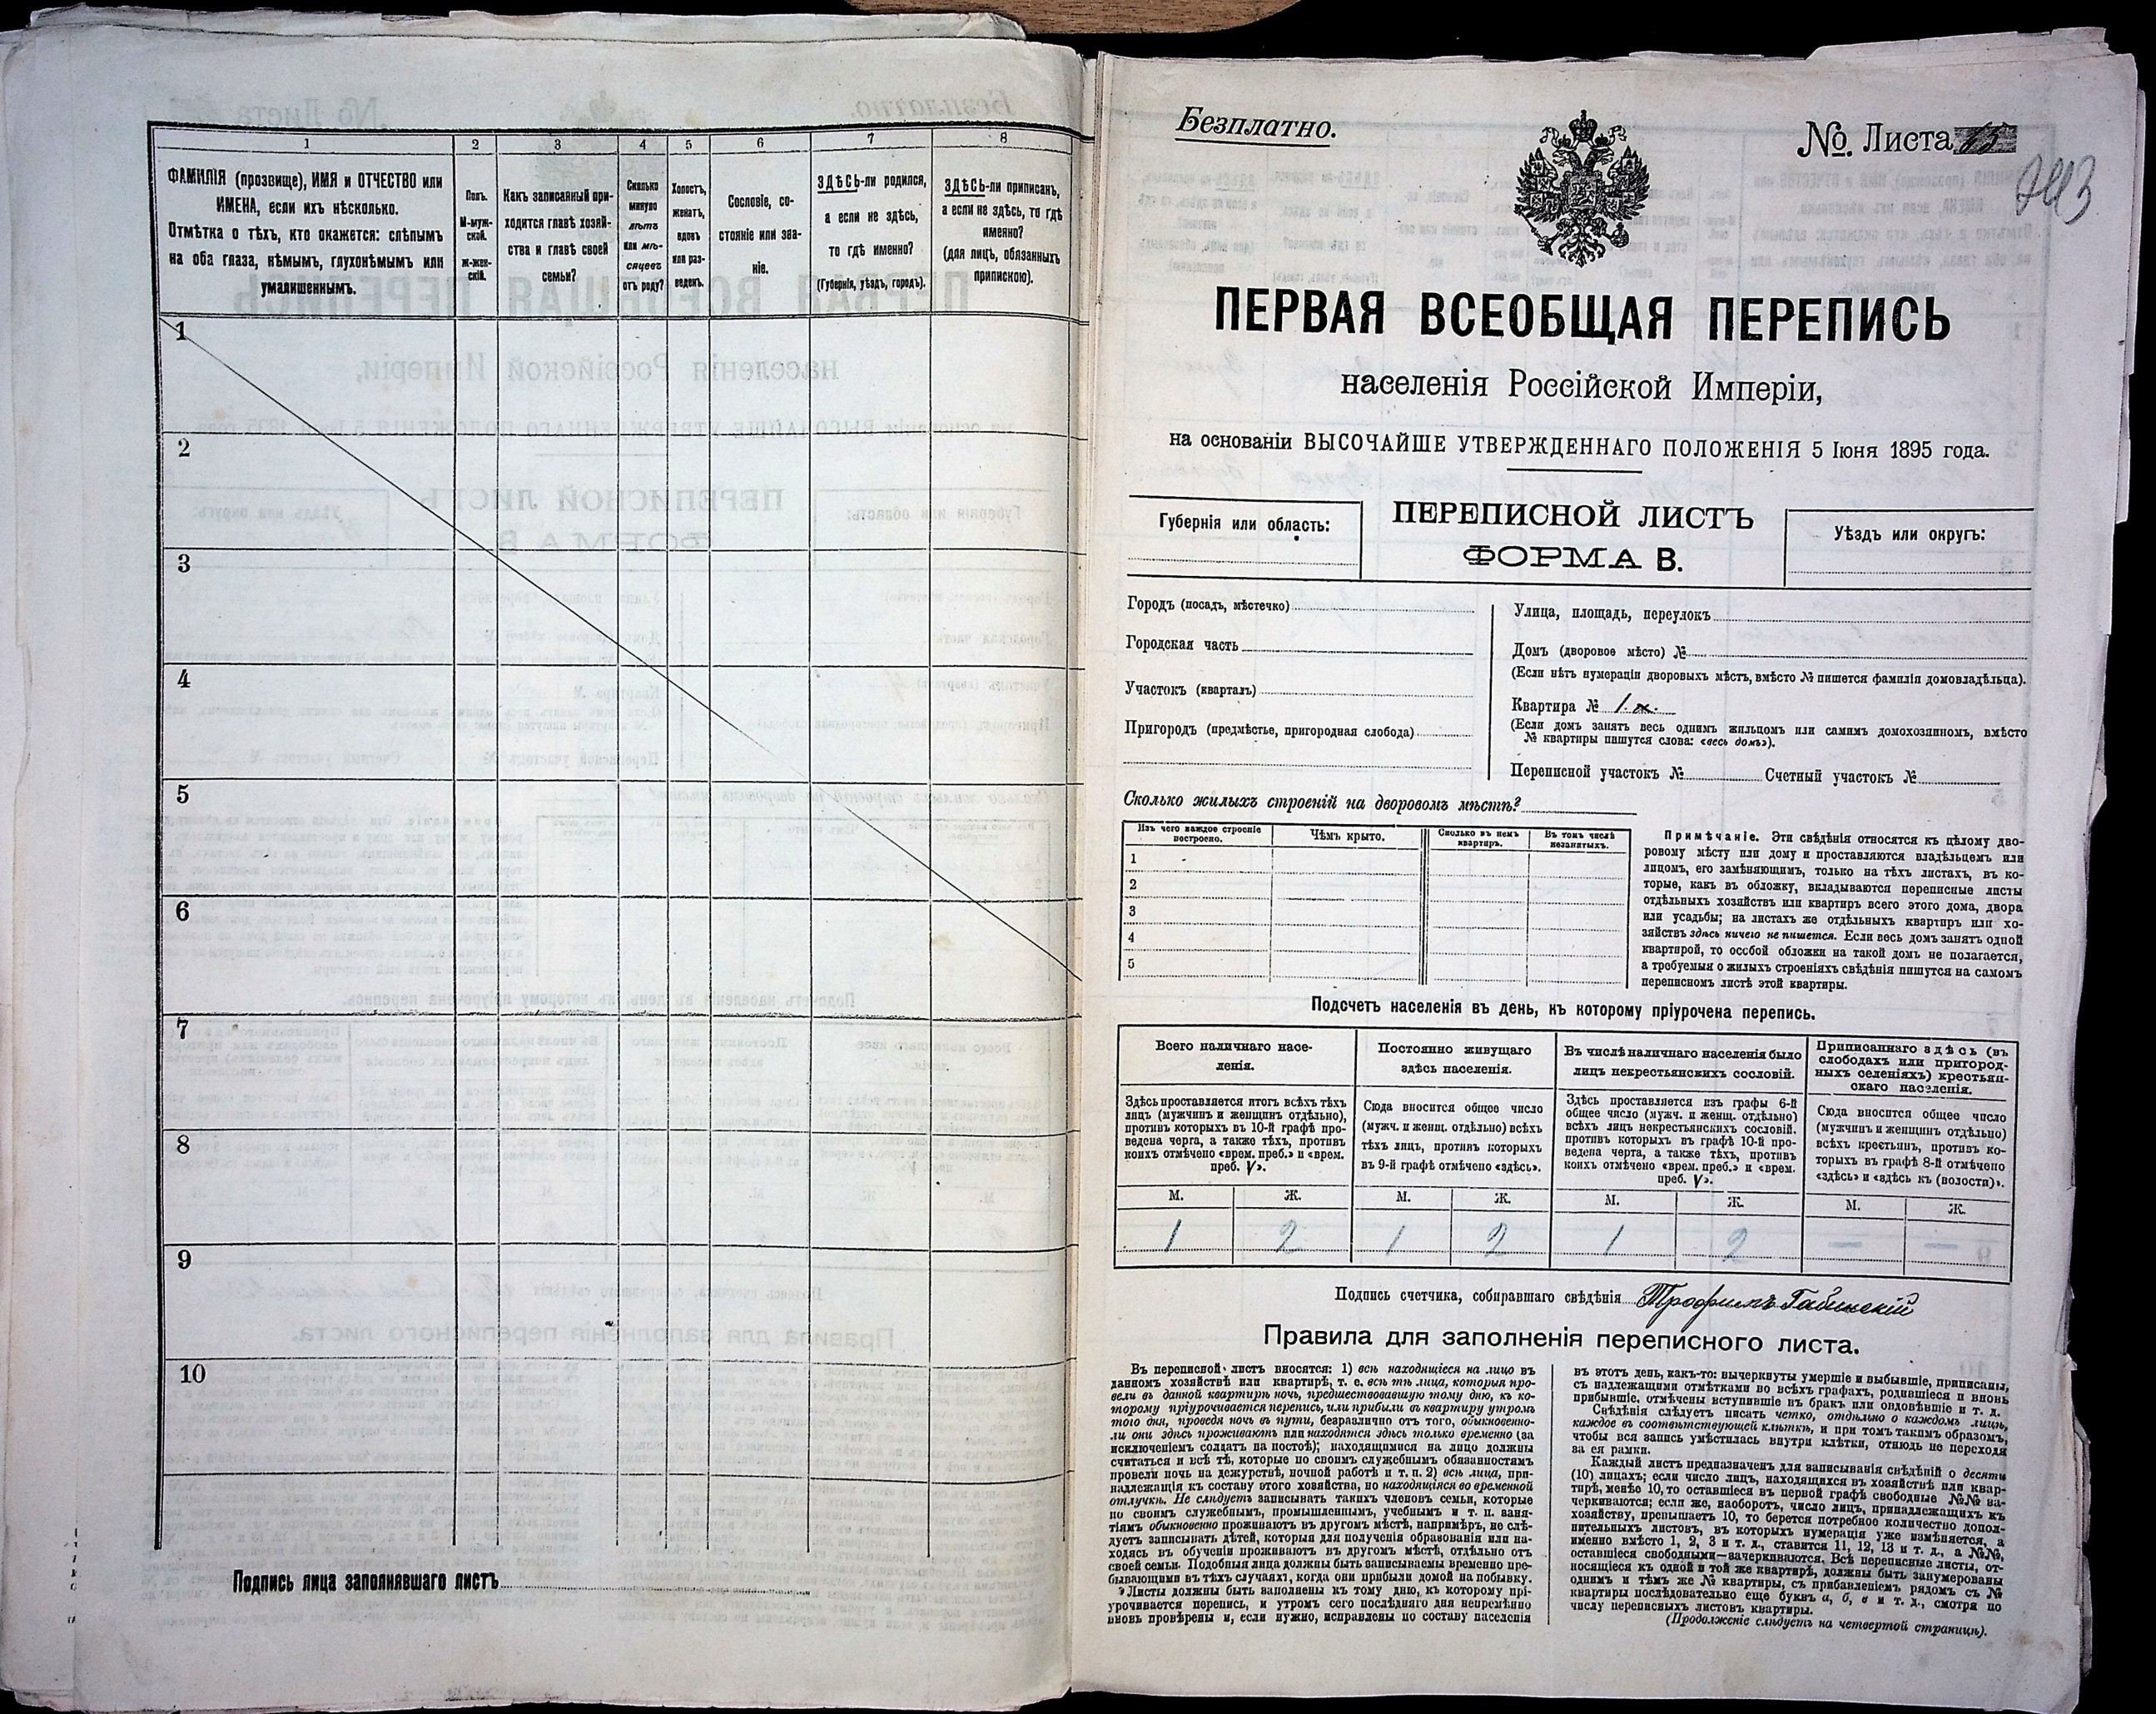 1 2 3 4 5 6 7 8
ФАМИЛІЯ (прозвище), ИМЯ и ОТЧЕСТВО или
ИМЕНА, если ихъ нѣсколько.
Отмѣтка о тѣхъ, кто окажется: слѣпымъ
на оба глаза, нѣмымъ, глухонѣмымъ или
умалишеннымъ.
Полъ.
М-муж-
ской.
ж-жен-
скій.
Какъ записанный при-
ходится главѣ хозяй-
ства и главѣ своей
семьи?
Сколько
минуло
лѣтъ
или мѣ-
сяцевъ
отъ роду?
Холостъ,
женатъ,
вдовъ
или раз-
веденъ.
Сословіе, со-
стояніе или зва-
ніе.
ЗДѢСЬ-ли родился,
а если не здѣсь,
то гдѣ именно?
(Губернія, уѣздъ, городъ).
ЗДѢСЬ-ли приписанъ,
а если не здѣсь, то гдѣ
именно?
(для лицъ, обязанныхъ
припискою).
1
2
3
4
5
6
7
8
9
10
Подпись лица заполнявшаго листъ
Безплатно.
№ Листа 15
243
ПЕРВАЯ ВСЕОБЩАЯ ПЕРЕПИСЬ
населенія Россійской Имперіи,
на основаніи ВЫСОЧАЙШЕ УТВЕРЖДЕННАГО ПОЛОЖЕНІЯ 5 Іюня 1895 года.
Губернія или область:
ПЕРЕПИСНОЙ ЛИСТЪ
ФОРМА В.
Уѣздъ или округъ:
Городъ (посадъ, мѣстечко)
Городская часть
Участокъ (кварталъ)
Пригородъ (предмѣстье, пригородная слобода)
Улица, площадь, переулокъ
Домъ (дворовое мѣсто) №
(Если нѣтъ нумераціи дворовыхъ мѣстъ, вмѣсто № пишется фамилія домовладѣльца).
Квартира № 1.
(Если домъ занятъ весь однимъ жильцомъ или самимъ домохозяиномъ, вмѣсто
№ квартиры пишутся слова: «весь домъ»).
Переписной участокъ № Счетный участокъ №
Сколько жилыхъ строеній на дворовомъ мѣстѣ?
Изъ чего каждое строеніе
построено.
Чѣмъ крыто.
Сколько въ немъ
квартиръ.
Въ томъ числѣ
незанятыхъ.
1
2
3
4
5
Примѣчаніе. Эти свѣдѣнія относятся къ цѣлому дво-
ровому мѣсту или дому и проставляются владѣльцемъ или
лицомъ, его замѣняющимъ, только на тѣхъ листахъ, въ ко-
торые, какъ въ обложку, вкладываются переписные листы
отдѣльныхъ хозяйствъ или квартиръ всего этого дома, двора
или усадьбы; на листахъ же отдѣльныхъ квартиръ или хо-
зяйствъ здѣсь ничего не пишется. Если весь домъ занятъ одной
квартирой, то особой обложки на такой домъ не полагается,
а требуемыя о жилыхъ строеніяхъ свѣдѣнія пишутся на самомъ
переписномъ листѣ этой квартиры.
Подсчетъ населенія въ день, къ которому пріурочена перепись.
Всего наличнаго насе-
ленія.
Здѣсь проставляется итогъ всѣхъ тѣхъ
лицъ (мужчинъ и женщинъ отдѣльно),
противъ которыхъ въ 10-й графѣ про-
ведена черта, а также тѣхъ, противъ
коихъ отмѣчено «врем. преб.» и «врем.
преб. V».
Постоянно живущаго
здѣсь населенія.
Сюда вносится общее число
(мужч. и женщ. отдѣльно) всѣхъ
тѣхъ лицъ, противъ которыхъ
въ 9-й графѣ отмѣчено «здѣсь».
Въ числѣ наличнаго населенія было
лицъ некрестьянскихъ сословій.
Здѣсь проставляется изъ графы 6-й
общее число (мужч. и женщ. отдѣльно)
всѣхъ лицъ некрестьянскихъ сословій.
противъ которыхъ въ графѣ 10-й про-
ведена черта, а также тѣхъ, противъ
коихъ отмѣчено «врем. преб.» и «врем.
преб. V».
Приписаннаго здѣсь (въ
слободахъ или пригород-
ныхъ селеніяхъ) крестьян-
скаго населенія.
Сюда вносится общее число
(мужчинъ и женщинъ отдѣльно)
всѣхъ крестьянъ, противъ ко-
торыхъ въ графѣ 8-й отмѣчено
«здѣсь» и «здѣсь къ (волости)».
М. Ж. М. Ж. М. Ж. М. Ж.
1 2 1 2 1 2 — —
Подпись счетчика, собиравшаго свѣдѣнія Трофимъ Габинскій
Правила для заполненія переписного листа.
Въ переписной листъ вносятся: 1) всѣ находящіеся на лицо въ
данномъ хозяйствѣ или квартирѣ, т. е. всѣ тѣ лица, которыя про-
вели въ данной квартирѣ ночь, предшествовавшую тому дню, къ ко-
торому пріурочивается перепись, или прибыли въ квартиру утромъ
того дня, проведя ночь въ пути, безразлично отъ того, обыкновенно-
ли они здѣсь проживаютъ или находятся здѣсь только временно (за
исключеніемъ солдатъ на постоѣ); находящимися на лицо должны
считаться и всѣ тѣ, которые по своимъ служебнымъ обязанностямъ
провели ночь на дежурствѣ, ночной работѣ и т. п. 2) всѣ лица, при-
надлежащія къ составу этого хозяйства, но находящіяся во временной
отлучкѣ. Не слѣдуетъ записывать такихъ членовъ семьи, которые
по своимъ служебнымъ, промышленнымъ, учебнымъ и т. п. заня-
тіямъ обыкновенно проживаютъ въ другомъ мѣстѣ, напримѣръ, не слѣ-
дуетъ записывать дѣтей, которыя для полученія образованія или на-
ходясь въ обученіи проживаютъ въ другомъ мѣстѣ, отдѣльно отъ
своей семьи. Подобныя лица должны быть записываемы временно пре-
бывающими въ тѣхъ случаяхъ, когда они прибыли домой на побывку.
Листы должны быть заполнены къ тому дню, къ которому прі-
урочивается перепись, и утромъ сего послѣдняго дня непремѣнно
вновь провѣрены и, если нужно, исправлены по составу населенія
въ этотъ день, какъ-то: вычеркнуты умершіе и выбывшіе, приписаны,
съ надлежащими отмѣтками во всѣхъ графахъ, родившіеся и вновь
прибывшіе, отмѣчены вступившіе въ бракъ или овдовѣвшіе и т. д.
Свѣдѣнія слѣдуетъ писать четко, отдѣльно о каждомъ лицѣ,
каждое въ соотвѣтствующей клѣткѣ, и при томъ такимъ образомъ,
чтобы вся запись умѣстилась внутри клѣтки, отнюдь не переходя
за ея рамки.
Каждый листъ предназначенъ для записыванія свѣдѣній о десяти
(10) лицахъ; если число лицъ, находящихся въ хозяйствѣ или квар-
тирѣ, менѣе 10, то оставшіеся въ первой графѣ свободные №№ за-
черкиваются; если же, наоборотъ, число лицъ, принадлежащихъ къ
хозяйству, превышаетъ 10, то берется потребное количество допол-
нительныхъ листовъ, въ которыхъ нумерація уже измѣняется, а
именно вмѣсто 1, 2, 3 и т. д., ставится 11, 12, 13 и т. д., а №№,
оставшіеся свободными—зачеркиваются. Всѣ переписные листы, от-
носящіеся къ одной и той же квартирѣ, должны быть занумерованы
однимъ и тѣмъ же № квартиры, съ прибавленіемъ рядомъ съ №
квартиры послѣдовательно еще буквъ а, б, в и т. д., смотря по
числу переписныхъ листовъ квартиры.
(Продолженіе слѣдуетъ на четвертой страницѣ).